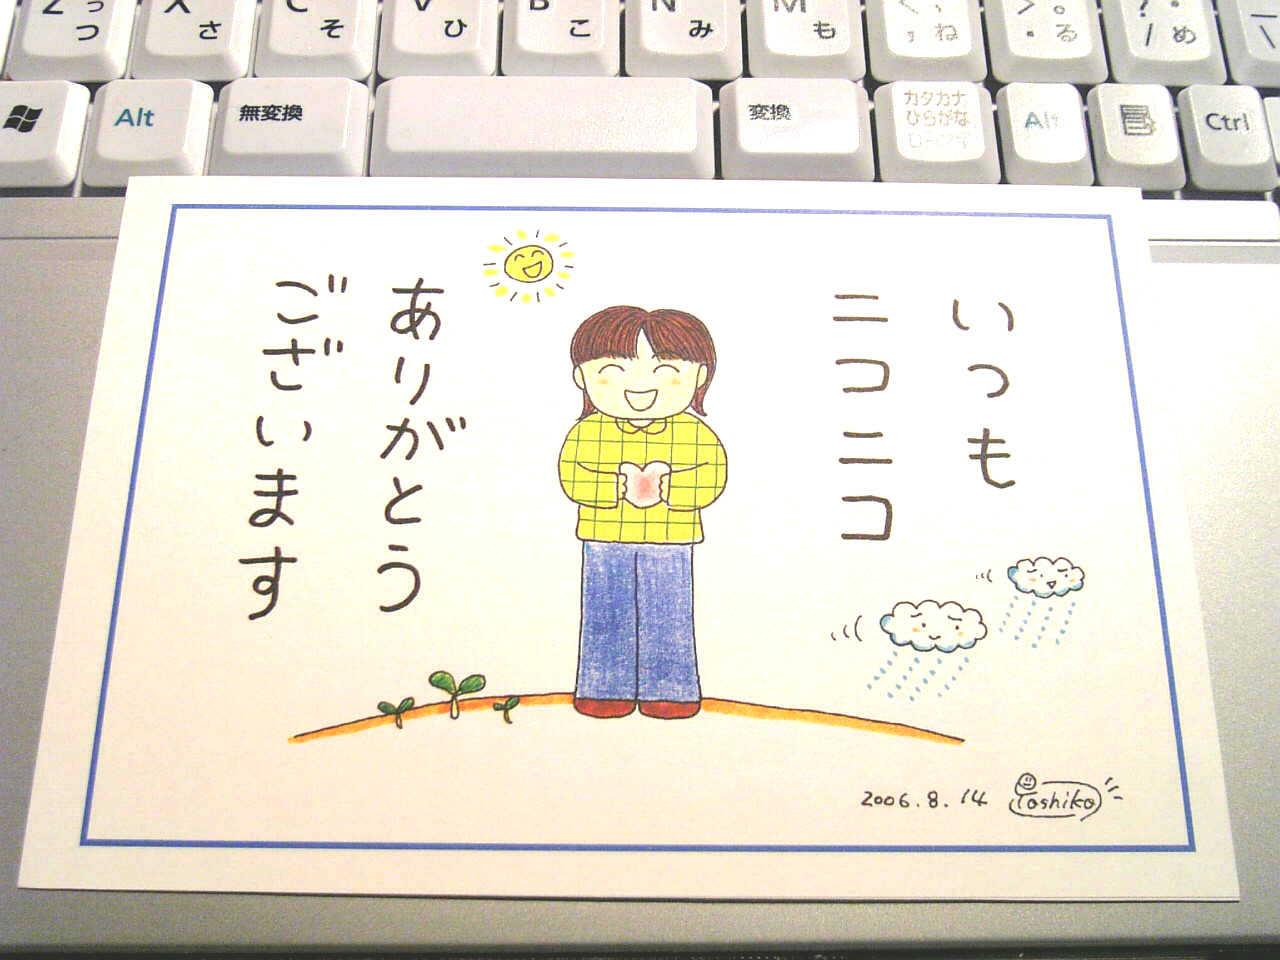 Z っ
つ
X さ
C そ
V ひ
B こ
N み
M も
< 、
, ね
> 。
. る
? ・
/ め
Alt
無変換
変換
カタカナ
ひらがな
ローマ字
Alt
Ctrl
いつも
ニコニコ
ありがとう
ございます
2006.8.14 Toshiko